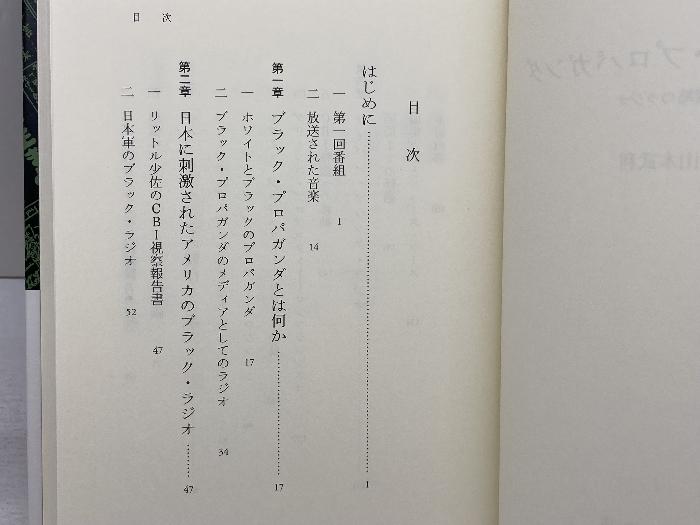 目次
はじめに……………………1
一 第一回番組 1
二 放送された音楽 14
第一章 ブラック・プロパガンダとは何か……………………17
一 ホワイトとブラックのプロパガンダ 17
二 ブラック・プロパガンダのメディアとしてのラジオ 34
第二章 日本に刺激されたアメリカのブラック・ラジオ………47
一 リットル少佐のCBI視察報告書 47
二 日本軍のブラック・ラジオ 52
目次